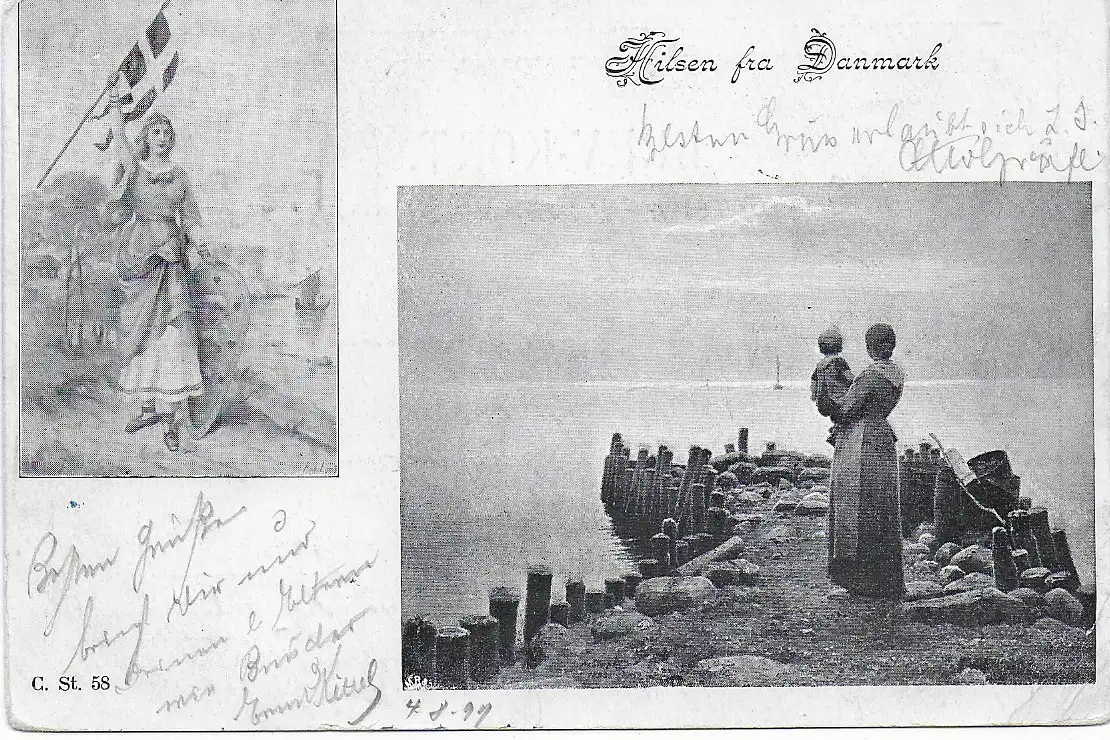 Hilsen fra Danmark
besten Gruß erlaubt sich
Besten Grüße
Dir und
deinen l Eltern
wie Bruder
C. St. 58
4-8-99